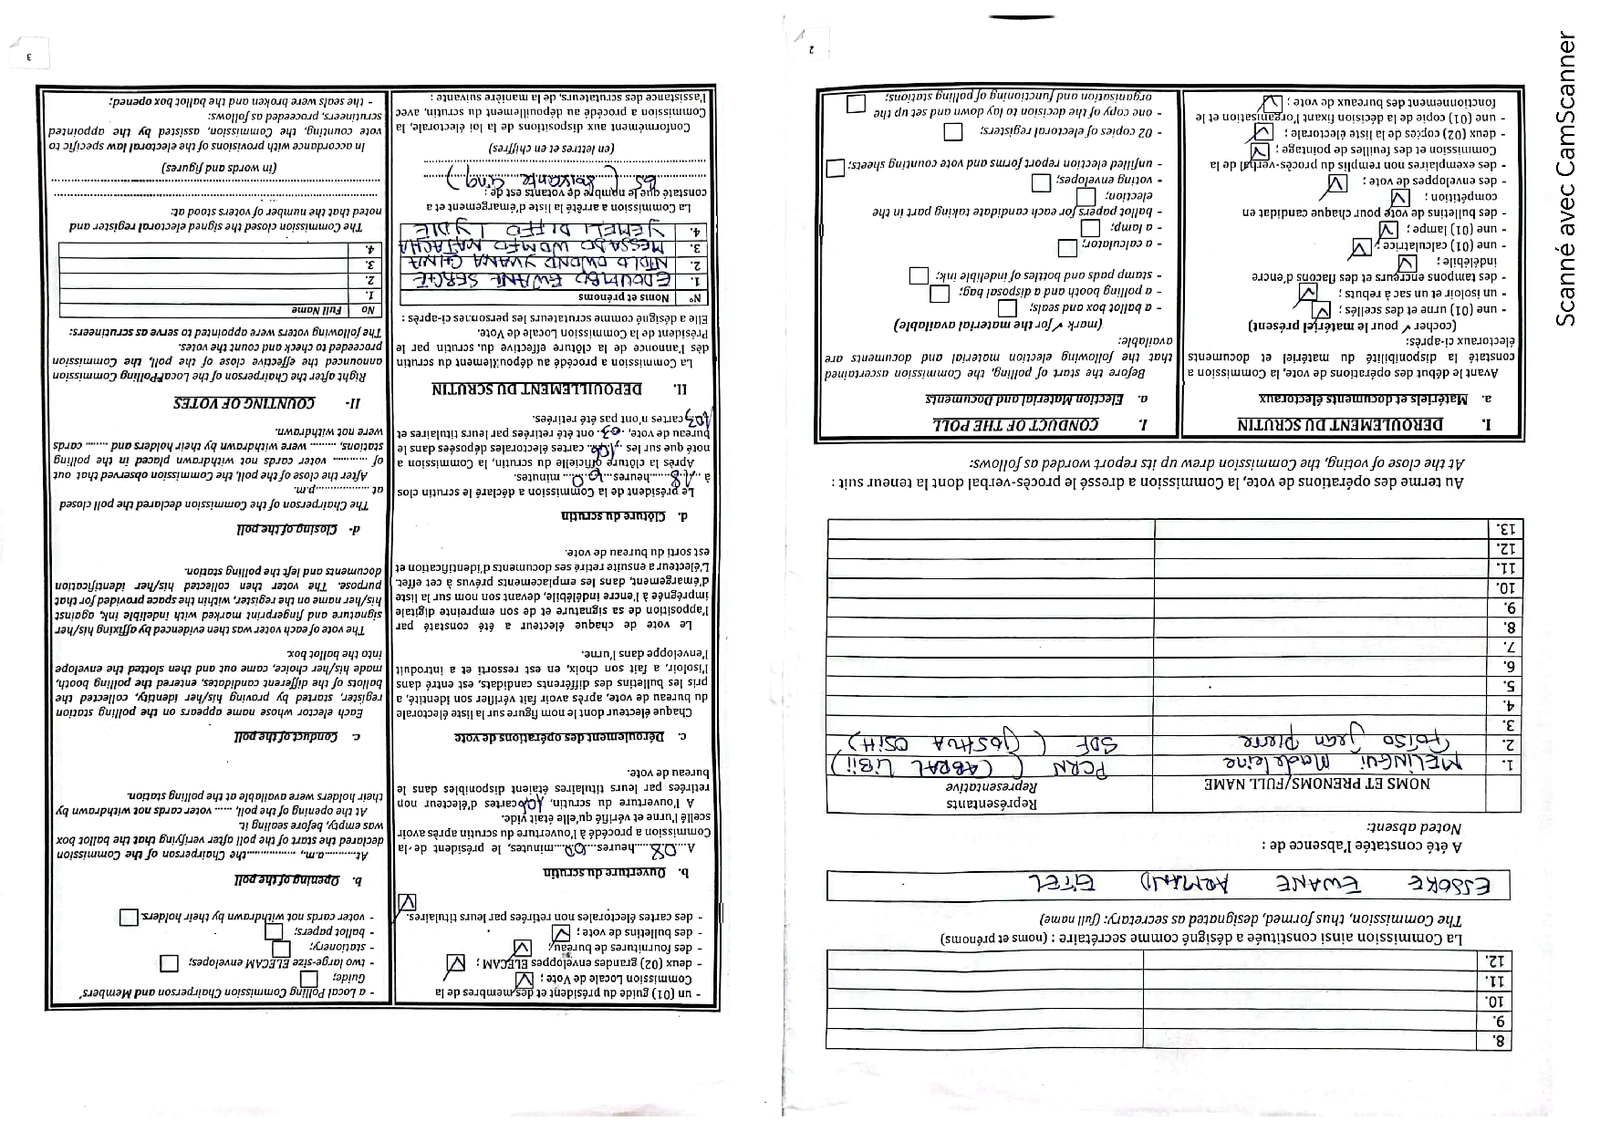 8.
9.
10.
11.
12.
La Commission ainsi constituée a désigné comme secrétaire : (noms et prénoms)
The Commission, thus formed, designated as secretary: (full name)
ESSOKE EWANE ARMAND EITEL
A été constatée l'absence de :
Noted absent:
NOMS ET PRENOMS/FULL NAME
Représentants
Representative
1. MELINGUI Madeleine PCRN (CABRAL LIBII)
2. FOTSO Jean Pierre SDF (JOSHUA OSIH)
3.
4.
5.
6.
7.
8.
9.
10.
11.
12.
13.
Au terme des opérations de vote, la Commission a dressé le procès-verbal dont la teneur suit :
At the close of voting, the Commission drew up its report worded as follows:
I. DEROULEMENT DU SCRUTIN
a. Matériels et documents électoraux
Avant le début des opérations de vote, la Commission a
constaté la disponibilité du matériel et documents
électoraux ci-après:
(cocher ✓ pour le matériel présent)
- une (01) urne et des scellés ;
- un isoloir et un sac à rebuts ;
- des tampons encreurs et des flacons d'encre
indélébile ;
- une (01) calculatrice ;
- une (01) lampe ;
- des bulletins de vote pour chaque candidat en
compétition ;
- des enveloppes de vote ;
- des exemplaires non remplis du procès-verbal de la
Commission et des feuilles de pointage ;
- deux (02) copies de la liste électorale ;
- une (01) copie de la décision fixant l'organisation et le
fonctionnement des bureaux de vote ;
I. CONDUCT OF THE POLL
a. Election Material and Documents
Before the start of polling, the Commission ascertained
that the following election material and documents are
available:
(mark ✓ for the material available)
- a ballot box and seals;
- a polling booth and a disposal bag;
- stamp pads and bottles of indelible ink;
- a calculator;
- a lamp;
- ballot papers for each candidate taking part in the
election;
- voting envelopes;
- unfilled election report forms and vote counting sheets;
- 02 copies of electoral registers;
- one copy of the decision to lay down and set up the
organisation and functioning of polling stations;
2
- un (01) guide du président et des membres de la
Commission Locale de Vote ;
- deux (02) grandes enveloppes ELECAM ;
- des fournitures de bureau;
- des bulletins de vote ;
- des cartes électorales non retirées par leurs titulaires.
b. Ouverture du scrutin
A...08...heures...00...minutes, le président de la
Commission a procédé à l'ouverture du scrutin après avoir
scellé l'urne et vérifié qu'elle était vide.
A l'ouverture du scrutin, 106 cartes d'électeur non
retirées par leurs titulaires étaient disponibles dans le
bureau de vote.
c. Déroulement des opérations de vote
Chaque électeur dont le nom figure sur la liste électorale
du bureau de vote, après avoir fait vérifier son identité, a
pris les bulletins des différents candidats, est entré dans
l'isoloir, a fait son choix, en est ressorti et a introduit
l'enveloppe dans l'urne.
Le vote de chaque électeur a été constaté par
l'apposition de sa signature et de son empreinte digitale
imprégnée à l'encre indélébile, devant son nom sur la liste
d'émargement, dans les emplacements prévus à cet effet.
L'électeur a ensuite retiré ses documents d'identification et
est sorti du bureau de vote.
d. Clôture du scrutin
Le président de la Commission a déclaré le scrutin clos
à ..18.....heures...00... minutes.
Après la clôture officielle du scrutin, la Commission a
noté que sur les ..106.. cartes électorales déposées dans le
bureau de vote, ..03.. ont été retirées par leurs titulaires et
103 cartes n'ont pas été retirées.
II. DEPOUILLEMENT DU SCRUTIN
La Commission a procédé au dépouillement du scrutin
dès l'annonce de la clôture effective du, scrutin par le
Président de la Commission Locale de Vote.
Elle a désigné comme scrutateurs les personnes ci-après :
N° Noms et prénoms
1. EDOUMBO EWANE SERGE
2. NTOLO OWONO YVANA GHINA
3. MESSADO WOMEO NATACHA
4. YEMELI DJIFFO LYDIE
La Commission a arrêté la liste d'émargement et a
constaté que le nombre de votants est de :
65 (Soixante Cinq)
(en lettres et en chiffres)
Conformément aux dispositions de la loi électorale, la
Commission a procédé au dépouillement du scrutin, avec
l'assistance des scrutateurs, de la manière suivante :
- a Local Polling Commission Chairperson and Members'
Guide;
- two large-size ELECAM envelopes;
- stationery;
- ballot papers;
- voter cards not withdrawn by their holders.
b. Opening of the poll
At...........a.m., ...............the Chairperson of the Commission
declared the start of the poll after verifying that the ballot box
was empty, before sealing it.
At the opening of the poll, ...... voter cards not withdrawn by
their holders were available at the polling station.
c. Conduct of the poll
Each elector whose name appears on the polling station
register, started by proving his/her identity, collected the
ballots of the different candidates, entered the polling booth,
made his/her choice, came out and then slotted the envelope
into the ballot box.
The vote of each voter was then evidenced by affixing his/her
signature and fingerprint marked with indelible ink, against
his/her name on the register, within the space provided for that
purpose. The voter then collected his/her identification
documents and left the polling station.
d- Closing of the poll
The Chairperson of the Commission declared the poll closed
at ................p.m.
After the close of the poll, the Commission observed that out
of .......... voter cards not withdrawn placed in the polling
stations, ......... were withdrawn by their holders and ....... cards
were not withdrawn.
II- COUNTING OF VOTES
Right after the Chairperson of the Local Polling Commission
announced the effective close of the poll, the Commission
proceeded to check and count the votes.
The following voters were appointed to serve as scrutineers:
No Full Name
1.
2.
3.
4.
The Commission closed the signed electoral register and
noted that the number of voters stood at:
(in words and figures)
In accordance with provisions of the electoral law specific to
vote counting, the Commission, assisted by the appointed
scrutineers, proceeded as follows:
- the seals were broken and the ballot box opened;
3
Scanné avec CamScanner